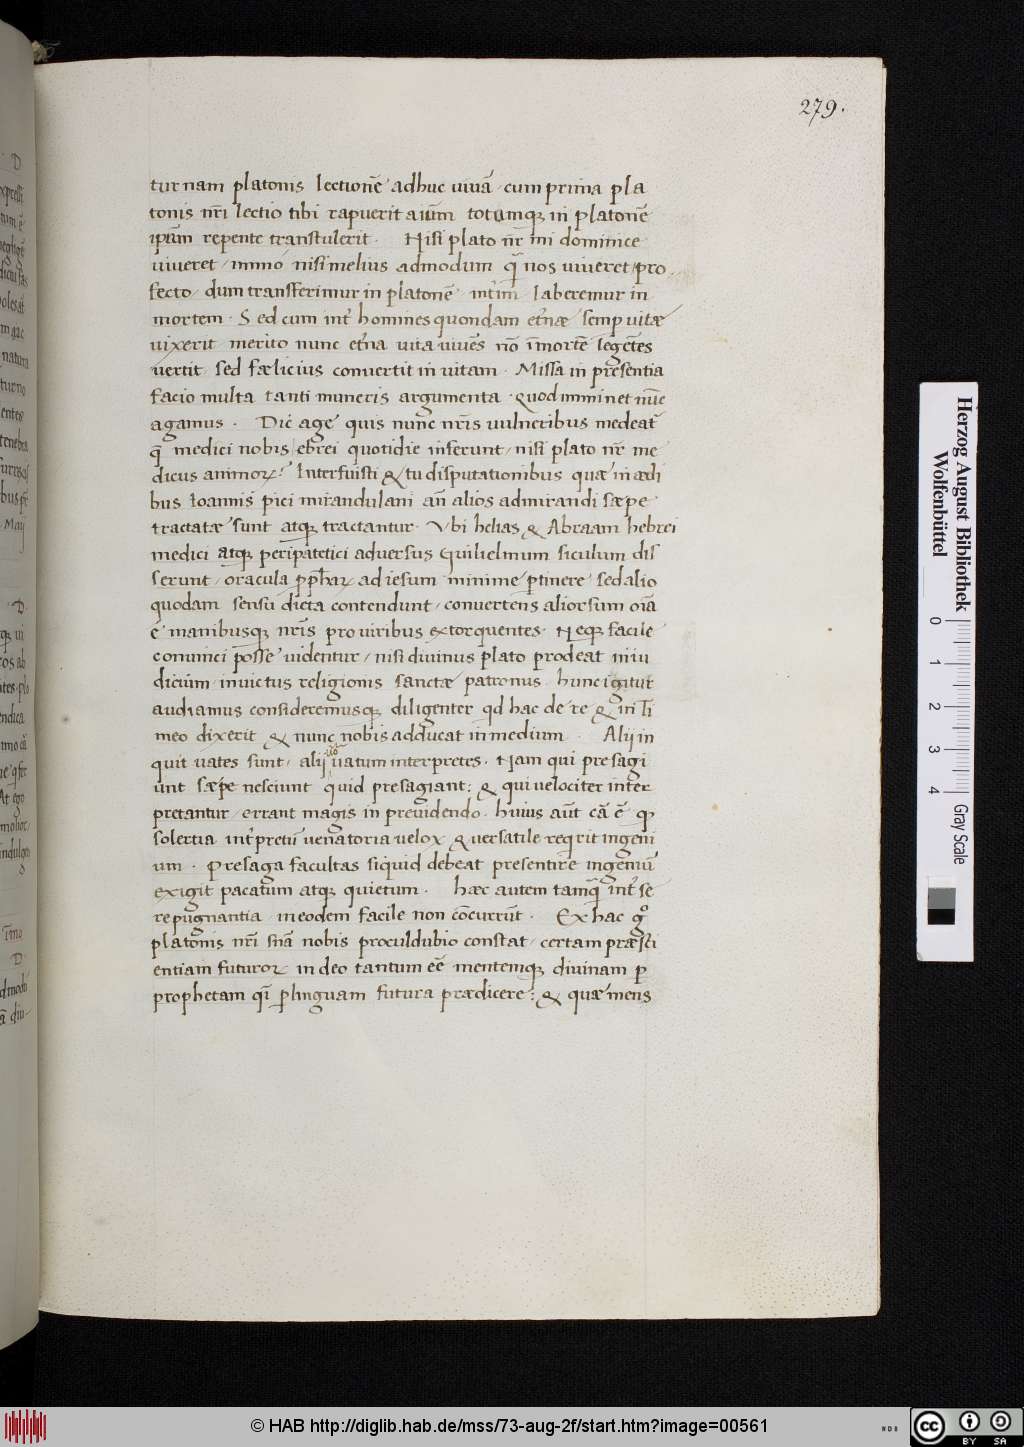 279.
tur nam platonis lectionē adhuc vivā · cum prima pla
tonis nr̄i lectio tibi rapuerit aīum totumqꝫ in platonē
ip̄am repente transtulerit · Nisi plato nr̄ mi dominice
viveret / immo nisi melius admodum q̄ nos viveret / pro
fecto / dum transferimur in platonē int̄im laberemur in
mortem · Sed cum int̄ homines quondam et̄næ semp vitæ
vixerit merito nunc et̄na vita vivēs nō ī mortē legētes
vertit sed fælicius convertit in vitam · Missa in presentia
facio multa tanti muneris argumenta · quod imminet nūc
agamus · Dic age quis nunc nr̄is vulneribus medeat̄
q̄ medici nobis ebrei quotidie inferunt / nisi plato nr̄ me
dicus animoꝝ? Interfuisti & tu disputationibus quæ in ædi
bus Ioannis pici mirandulani an̄ alios admirandi sæpe
tractatæ sunt atqꝫ tractantur · Ubi helias & Abraam hebrei
medici atqꝫ peripatetici adversus Guilielmum siculum dis
serunt / oracula ꝓpħaꝝ ad iesum minime ꝑtinere sed alio
quodam sensu dicta contendunt / convertens aliorsum oīa
e manibusqꝫ nr̄is pro viribus extorquentes · Neqꝫ facile
convinci posse videntur / nisi divinus plato prodeat in iu
dicium invictus religionis sanctæ patronus · hunc igitur
audiamus consideremusqꝫ diligenter qd hac de re & in ti
meo dixerit & nunc nobis adducat in medium · Alij in
quit vates sunt / alij v̄o vatum interpretes · Nam qui presagi
unt sæpe nesciunt quid presagiant: & qui velociter inter
pretantur / errant magis in previdendo · huius aūt cā ē qꝫ
solertia int̄pretū venatoria velox & versatile reqirit ingeni
um · presaga facultas siquid debeat presentire ingeniū
exigit pacatum atqꝫ quietum · hæc autem tamq̄ int̄ se
repugnantia in eodem facile non cōcurrūt · Ex hac gͦ
platonis nr̄i sn̄ia nobis proculdubio constat / certam præsci
entiam futuroꝝ in deo tantum eē mentemqꝫ divinam ꝑ
prophetam q̄ ꝑ linguam futura prædicere: & quæ mens
Herzog August Bibliothek
Wolfenbüttel
0 1 2 3 4
Gray Scale
© HAB http://diglib.hab.de/mss/73-aug-2f/start.htm?image=00561
cc BY SA